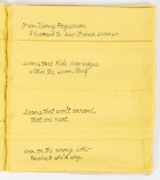 From Nancy Ferguson
I learned to sew French seams—
seams that hide raw edges
within the seam itself
seams that won't unravel,
that are neat.
even on the wrong side—
finished she'd say.